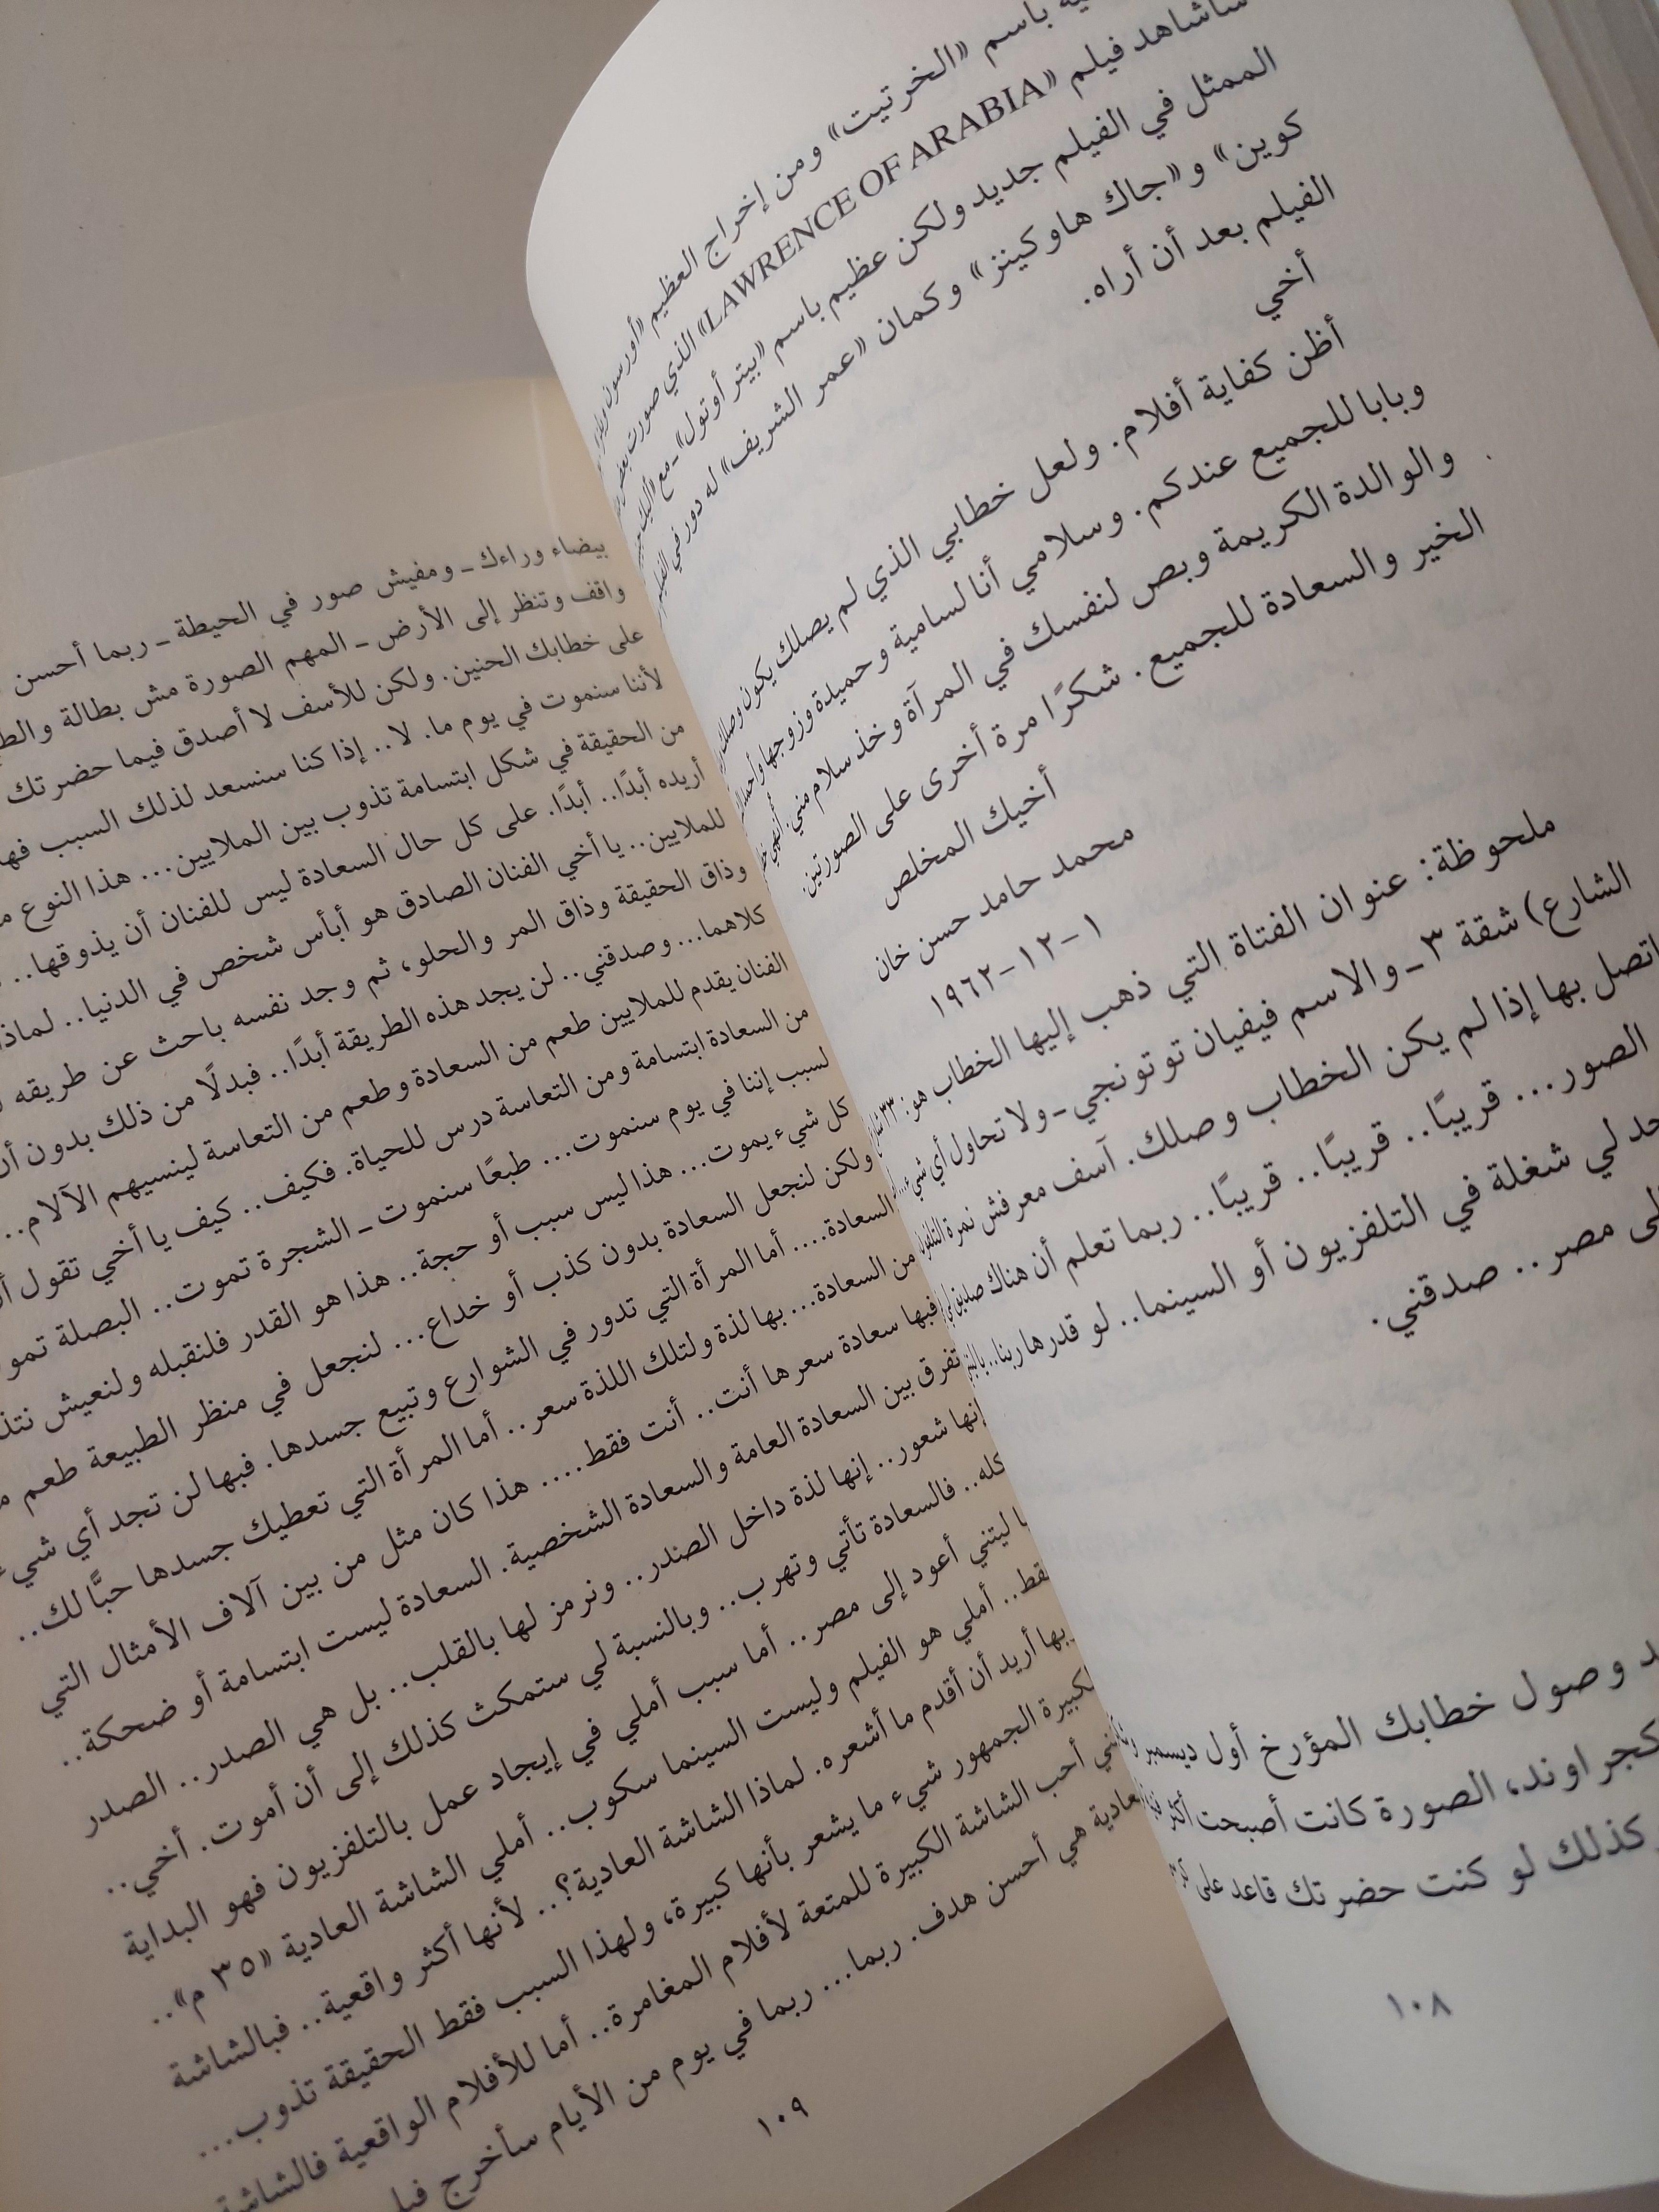 باسم «الخرتيت» ومن إخراج العظيم «أورسون
سأشاهد فيلم «LAWRENCE OF ARABIA» الذي صورت بعض
الممثل في الفيلم جديد ولكن عظيم باسم «بيتر أوتول» ـ مع «أليك
كوين» و«جاك هاوكينز» وكمان «عمر الشريف» له دور في الفيلم
الفيلم بعد أن أراه.
أخي
أظن كفاية أفلام. ولعل خطابي الذي لم يصلك يكون وصلك
وبابا للجميع عندكم. وسلامي أنا لسامية وحميدة وزوجها وأحمد
والوالدة الكريمة وبص لنفسك في المرآة وخذ سلام مني.
الخير والسعادة للجميع. شكرًا مرة أخرى على الصورتين.
أخيك المخلص
محمد حامد حسن خان
١-١٢-١٩٦٢
ملحوظة: عنوان الفتاة التي ذهب إليها الخطاب هو: ٣٣
الشارع) شقة ٣ ـ والاسم فيفيان توتونجي ـ ولا تحاول أي شيء...
اتصل بها إذا لم يكن الخطاب وصلك. آسف معرفش نمرة التلفون
الصور... قريبًا.. قريبًا.. قريبًا.. ربما تعلم أن هناك صديق
لي شغلة في التلفزيون أو السينما.. لو قدرها ربنا..
مصر.. صدقني.
وصول خطابك المؤرخ أول ديسمبر
الصورة كانت أصبحت أكثر
كذلك لو كنت حضرتك قاعد على
١٠٨
بيضاء وراءك ـ ومفيش صور في الحيطة ـ ربما أحسن
واقف وتنظر إلى الأرض ـ المهم الصورة مش بطالة
على خطابك الحنين. ولكن للأسف لا أصدق فيما حضرتك
لأننا سنموت في يوم ما. لا.. إذا كنا سنسعد لذلك السبب
من الحقيقة في شكل ابتسامة تذوب بين الملايين... هذا النوع
أريده أبدًا.. أبدًا. على كل حال السعادة ليس للفنان أن يذوقها..
للملايين.. يا أخي الفنان الصادق هو أبأس شخص في الدنيا..
وذاق الحقيقة وذاق المر والحلو، ثم وجد نفسه باحث عن طريقه
كلاهما... وصدقني.. لن يجد هذه الطريقة أبدًا.. فبدلًا من ذلك بدون
الفنان يقدم للملايين طعم من السعادة وطعم من التعاسة لينسيهم الآلام..
من السعادة ابتسامة ومن التعاسة درس للحياة. فكيف.. كيف يا أخي تقول
لسبب إننا في يوم سنموت... طبعًا سنموت ـ الشجرة تموت.. البصلة
كل شيء يموت... هذا ليس سبب أو حجة.. هذا هو القدر فلنقبله ولنعيش
ولكن لنجعل السعادة بدون كذب أو خداع... لنجعل في منظر الطبيعة طعم
السعادة.... أما المرأة التي تدور في الشوارع وتبيع جسدها. فبها لن تجد أي شيء
من السعادة... بها لذة ولتلك اللذة سعر.. أما المرأة التي تعطيك جسدها حبًّا لك..
فبها سعادة سعرها أنت.. أنت فقط.... هذا كان مثل من بين آلاف الأمثال التي
تفرق بين السعادة العامة والسعادة الشخصية. السعادة ليست ابتسامة أو ضحكة..
إنها شعور.. إنها لذة داخل الصندر.. ونرمز لها بالقلب.. بل هي الصدر.. الصدر
كله.. فالسعادة تأتي وتهرب.. وبالنسبة لي ستمكث كذلك إلى أن أموت. أخي..
ليتني أعود إلى مصر.. أما سبب أملي في إيجاد عمل بالتلفزيون فهو البداية
فقط.. أملي هو الفيلم وليست السينما سكوب.. أملي الشاشة العادية «٣٥ م»..
بها أريد أن أقدم ما أشعره. لماذا الشاشة العادية؟.. لأنها أكثر واقعية.. فبالشاشة
الكبيرة الجمهور شيء ما يشعر بأنها كبيرة، ولهذا السبب فقط الحقيقة تذوب...
أحب الشاشة الكبيرة للمتعة لأفلام المغامرة.. أما للأفلام الواقعية فالشاشة
العادية هي أحسن هدف. ربما... ربما في يوم من الأيام سأخرج
١٠٩